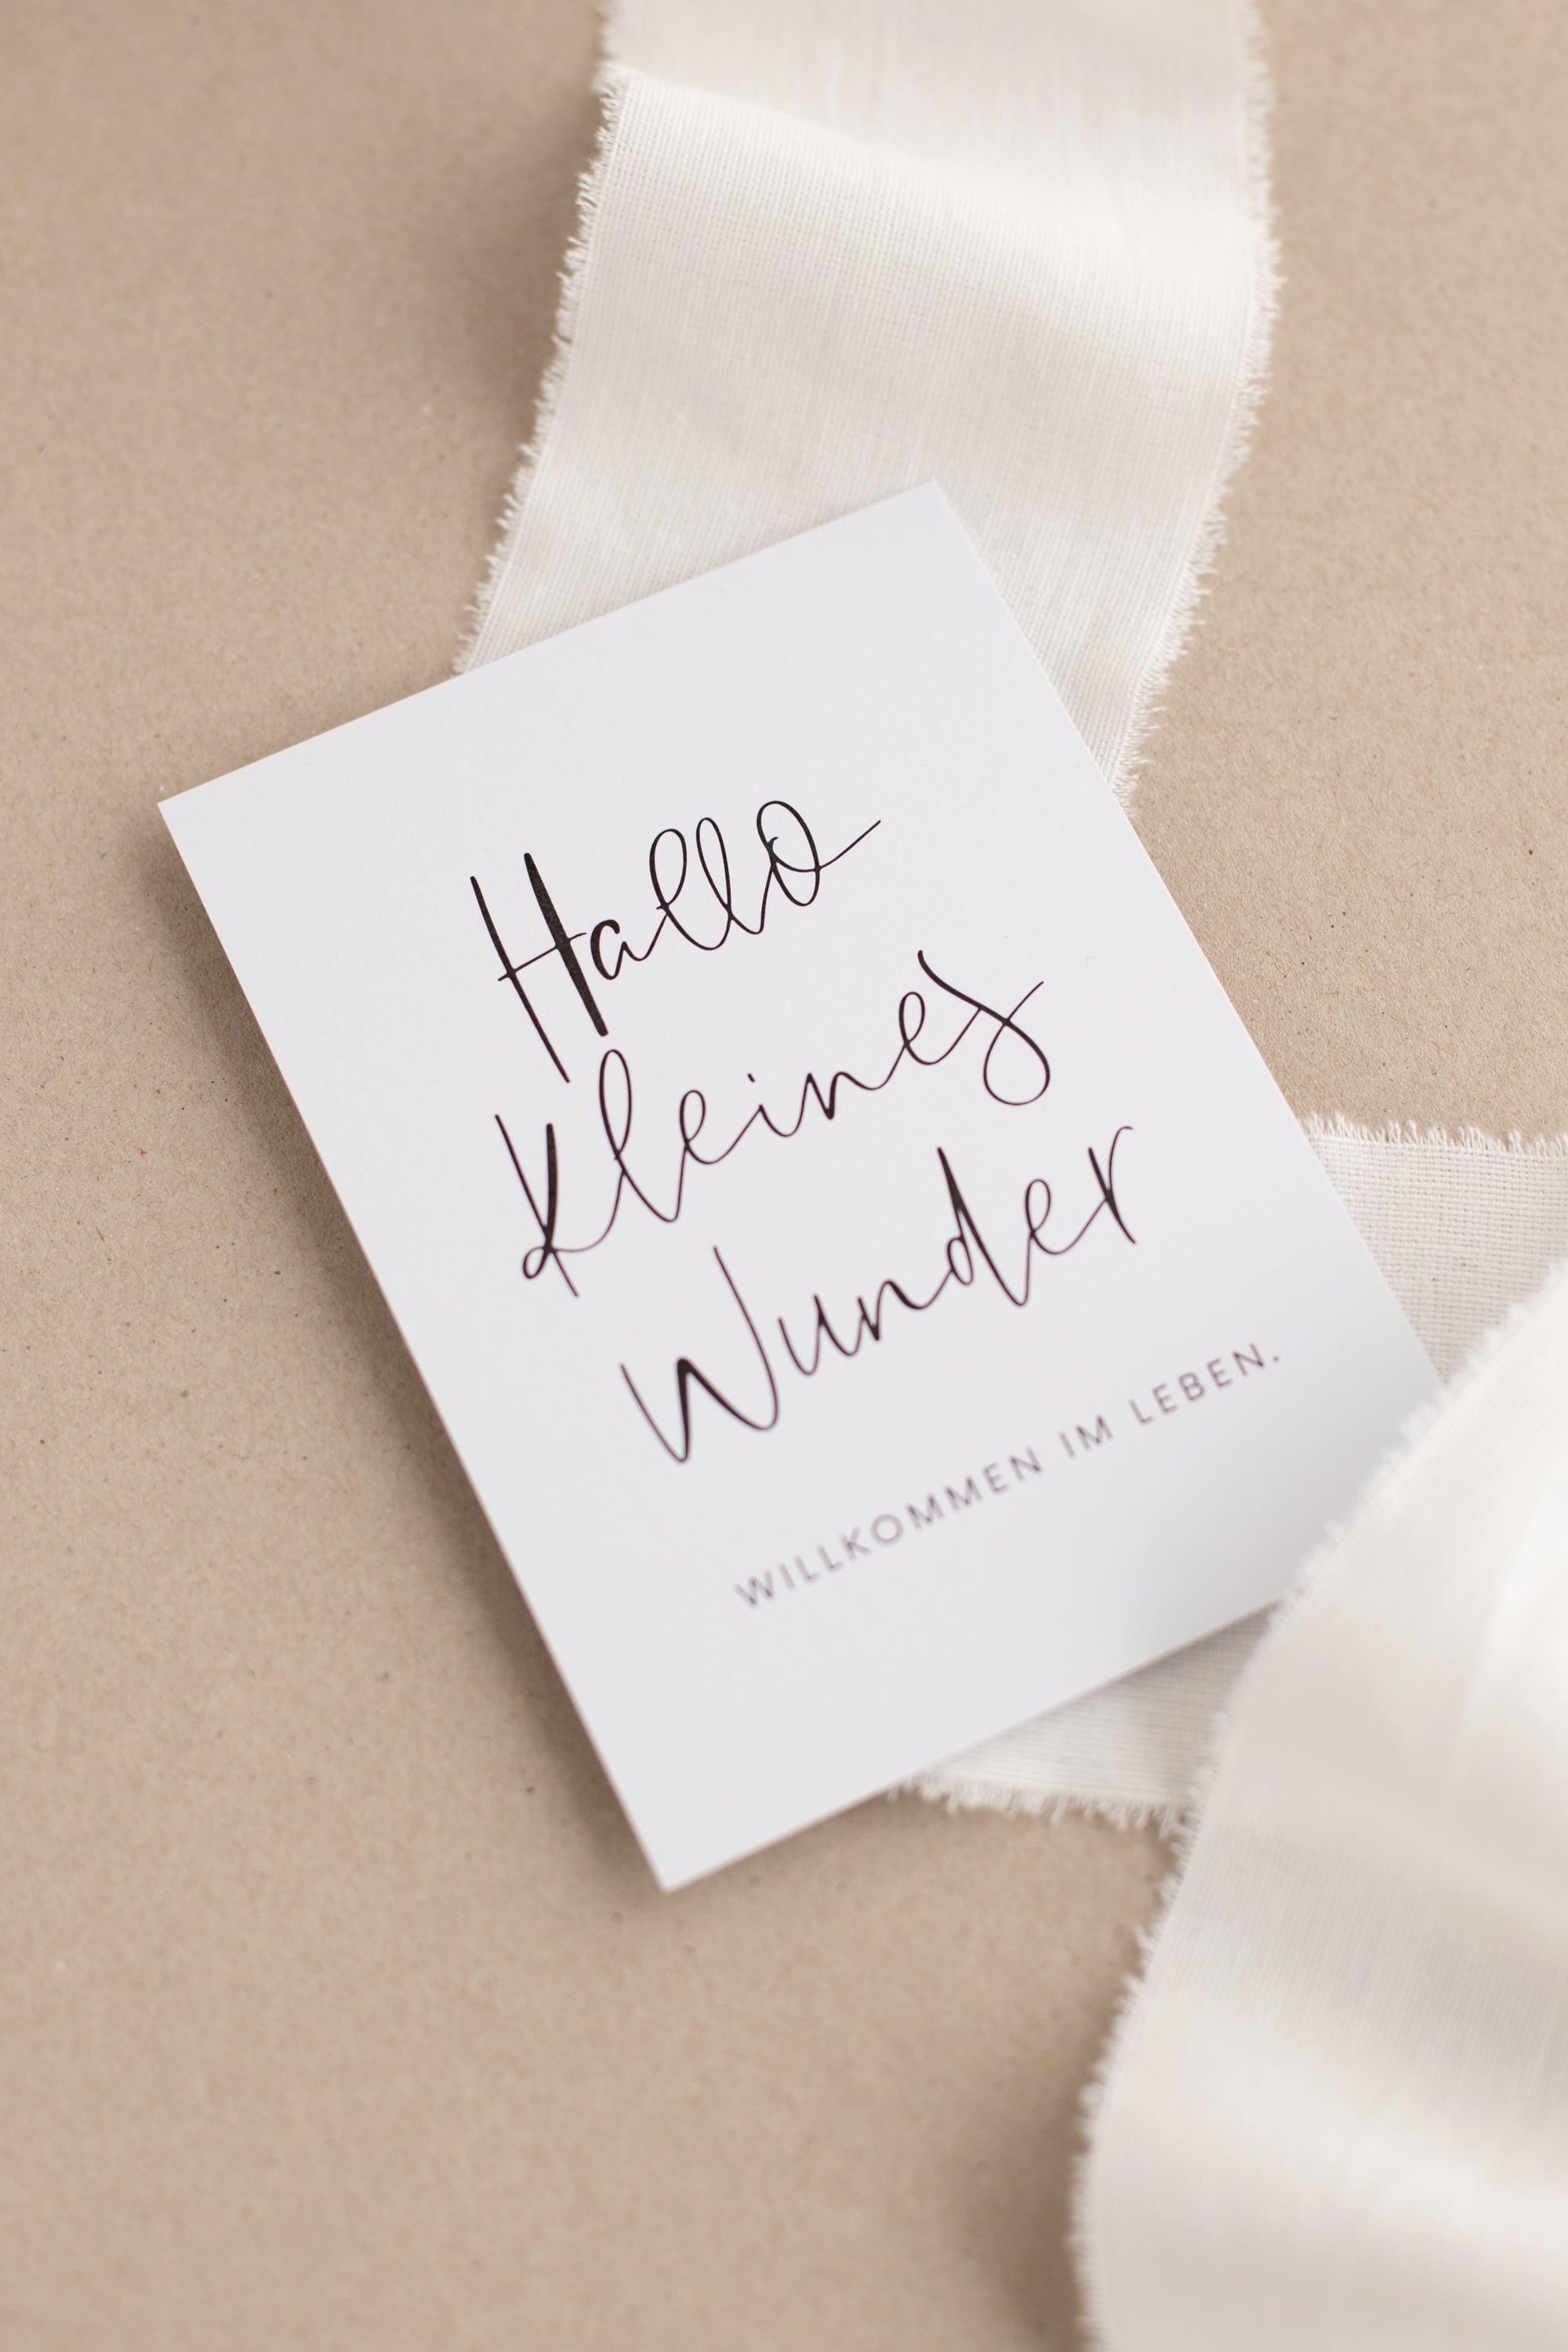 Hallo
kleines
Wunder
WILLKOMMEN IM LEBEN.